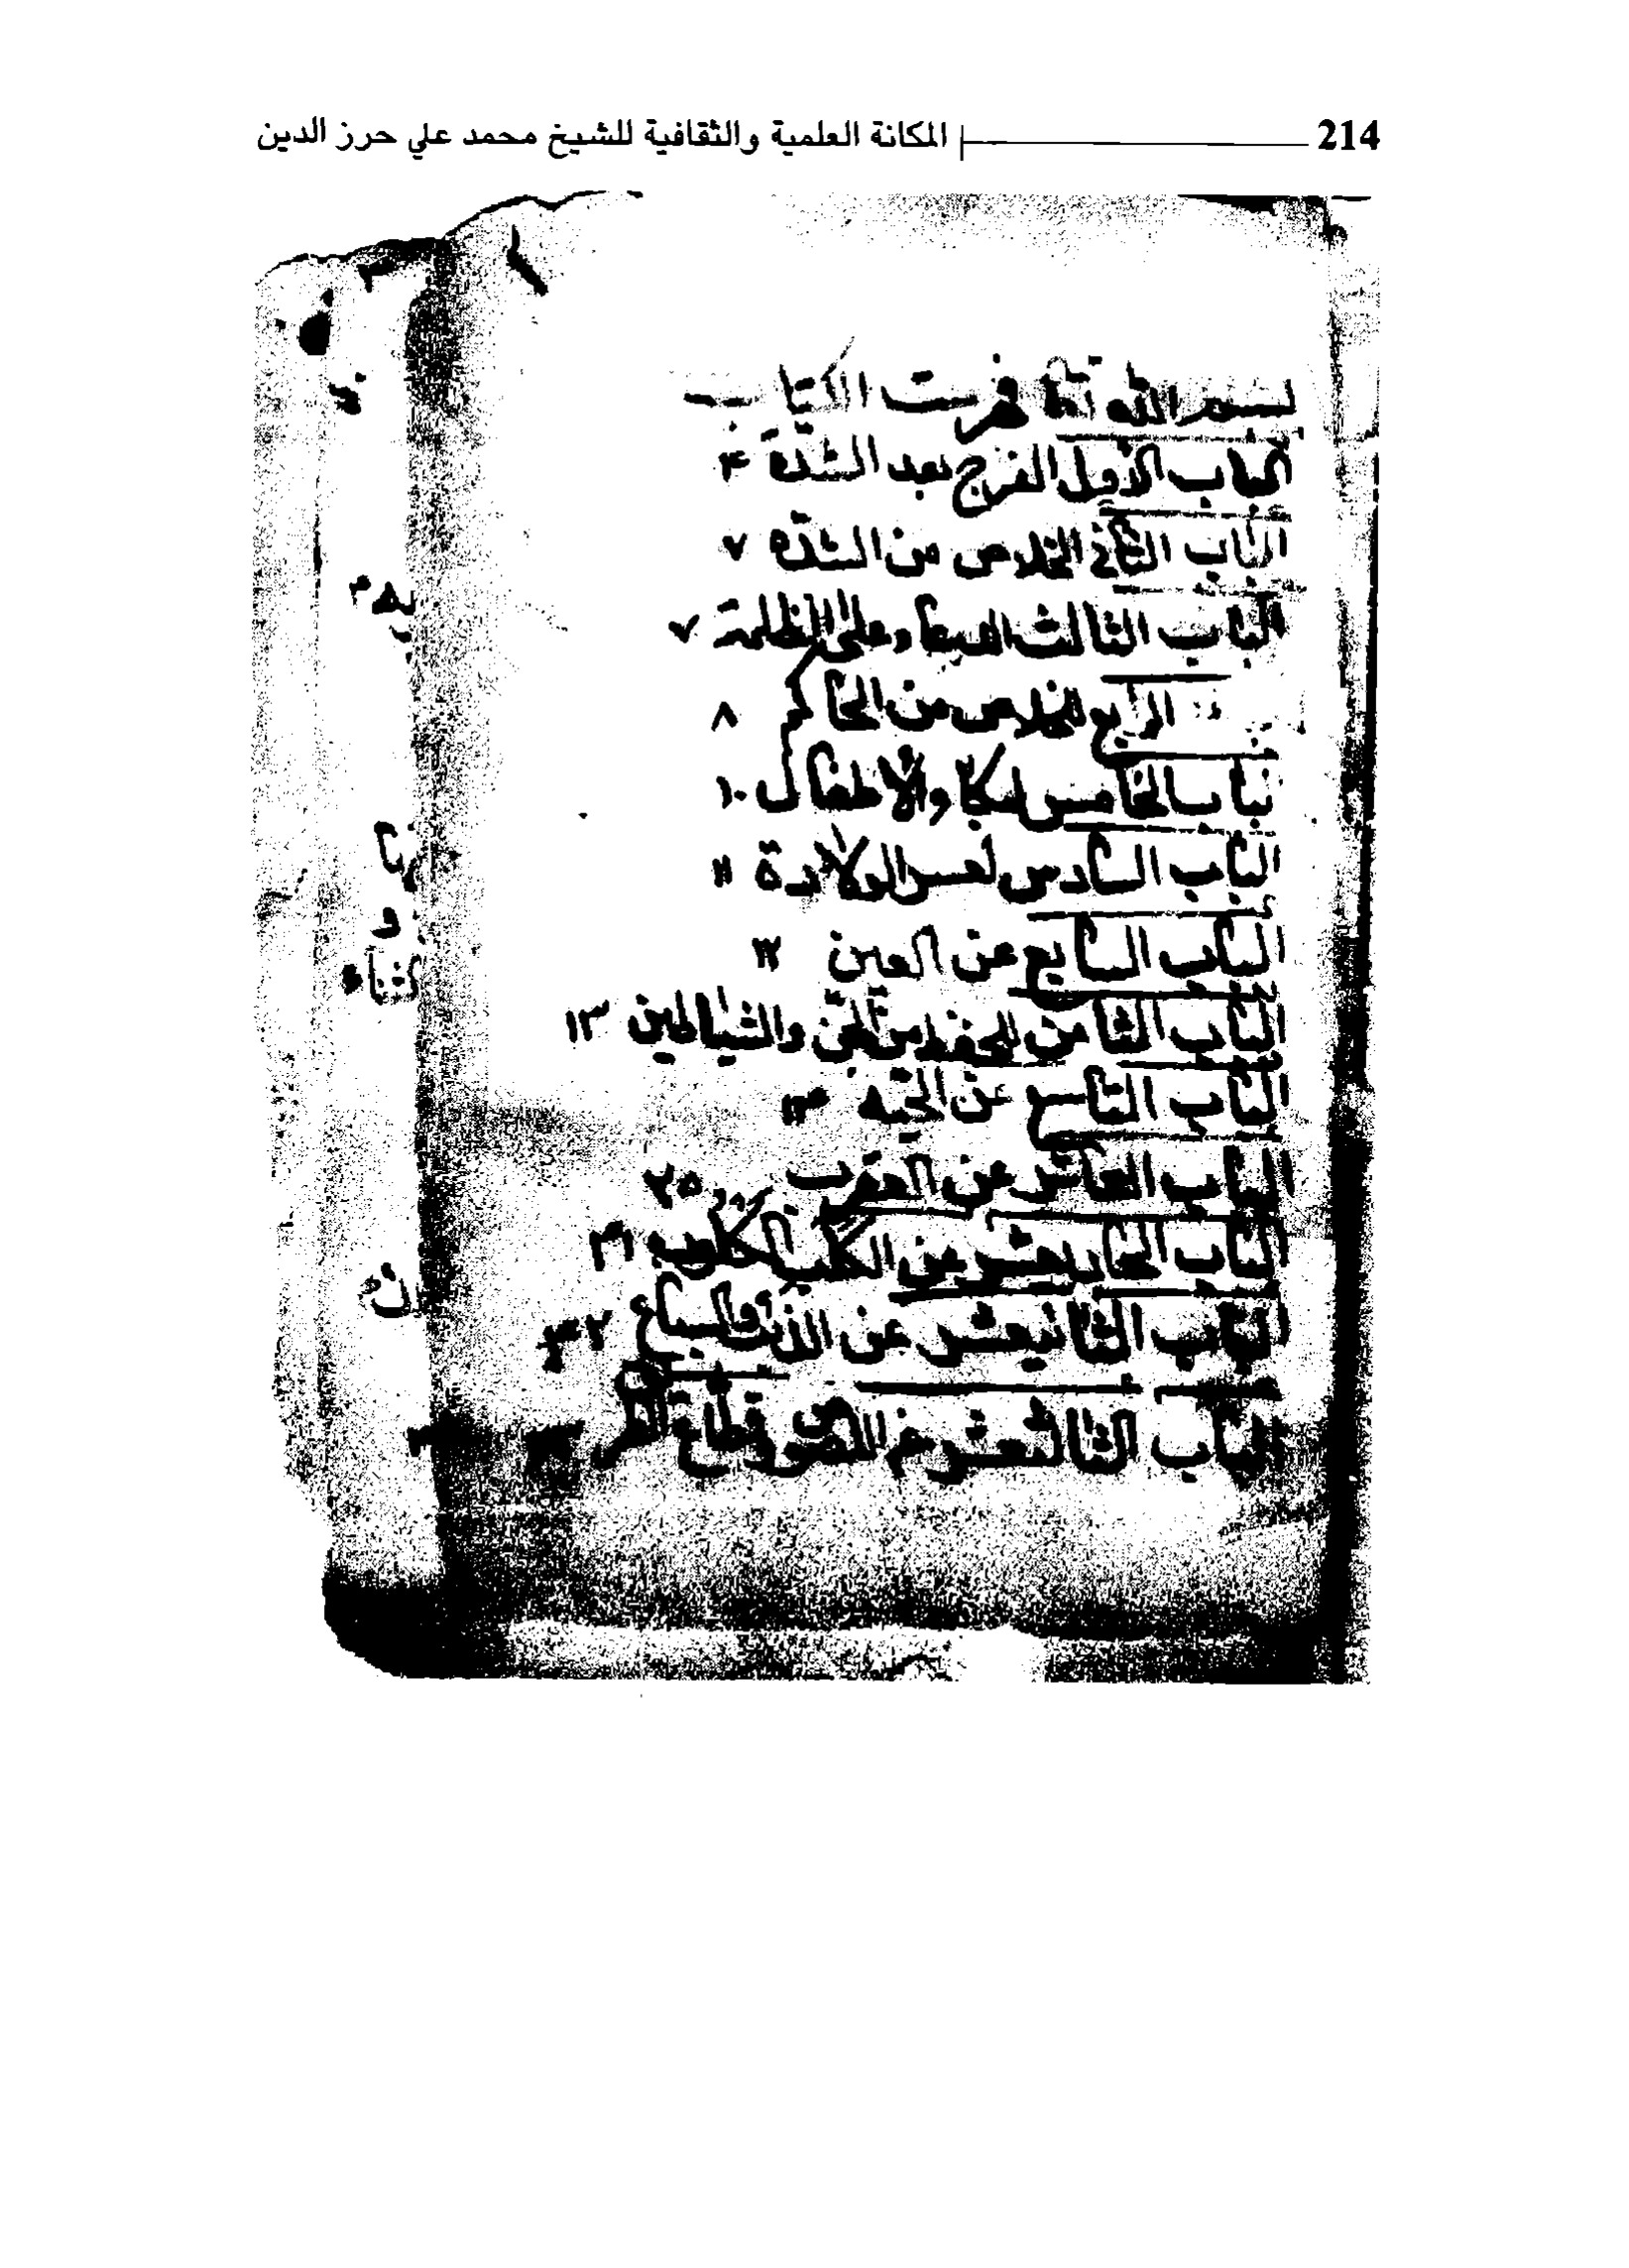 214 المكانة العلمية والثقافية للشيخ محمد علي حرز الدين
بسم الله فهرست الكتاب
الباب الأول الفرج بعد الشدة ۴
الباب الثاني الخلاص من الشدة ٧
الباب الثالث الدعاء على الظلمة ٧
الرابع الخلاص من الحاكم ٨
الباب الخامس لبكاء الاطفال ١٠
الباب السادس لعسر الولادة ١١
الباب السابع عن العين ١٢
الباب الثامن للحفظ من الجن والشياطين ١٣
الباب التاسع عن الحيه
الباب العاشر عن العقرب ٢٥
الباب الحاديعشر عن الكلب الكلوب ٣١
الباب الثانيعشر عن الذئب والسباع ٣٢
الباب الثالثعشر اللصوص وقطاع